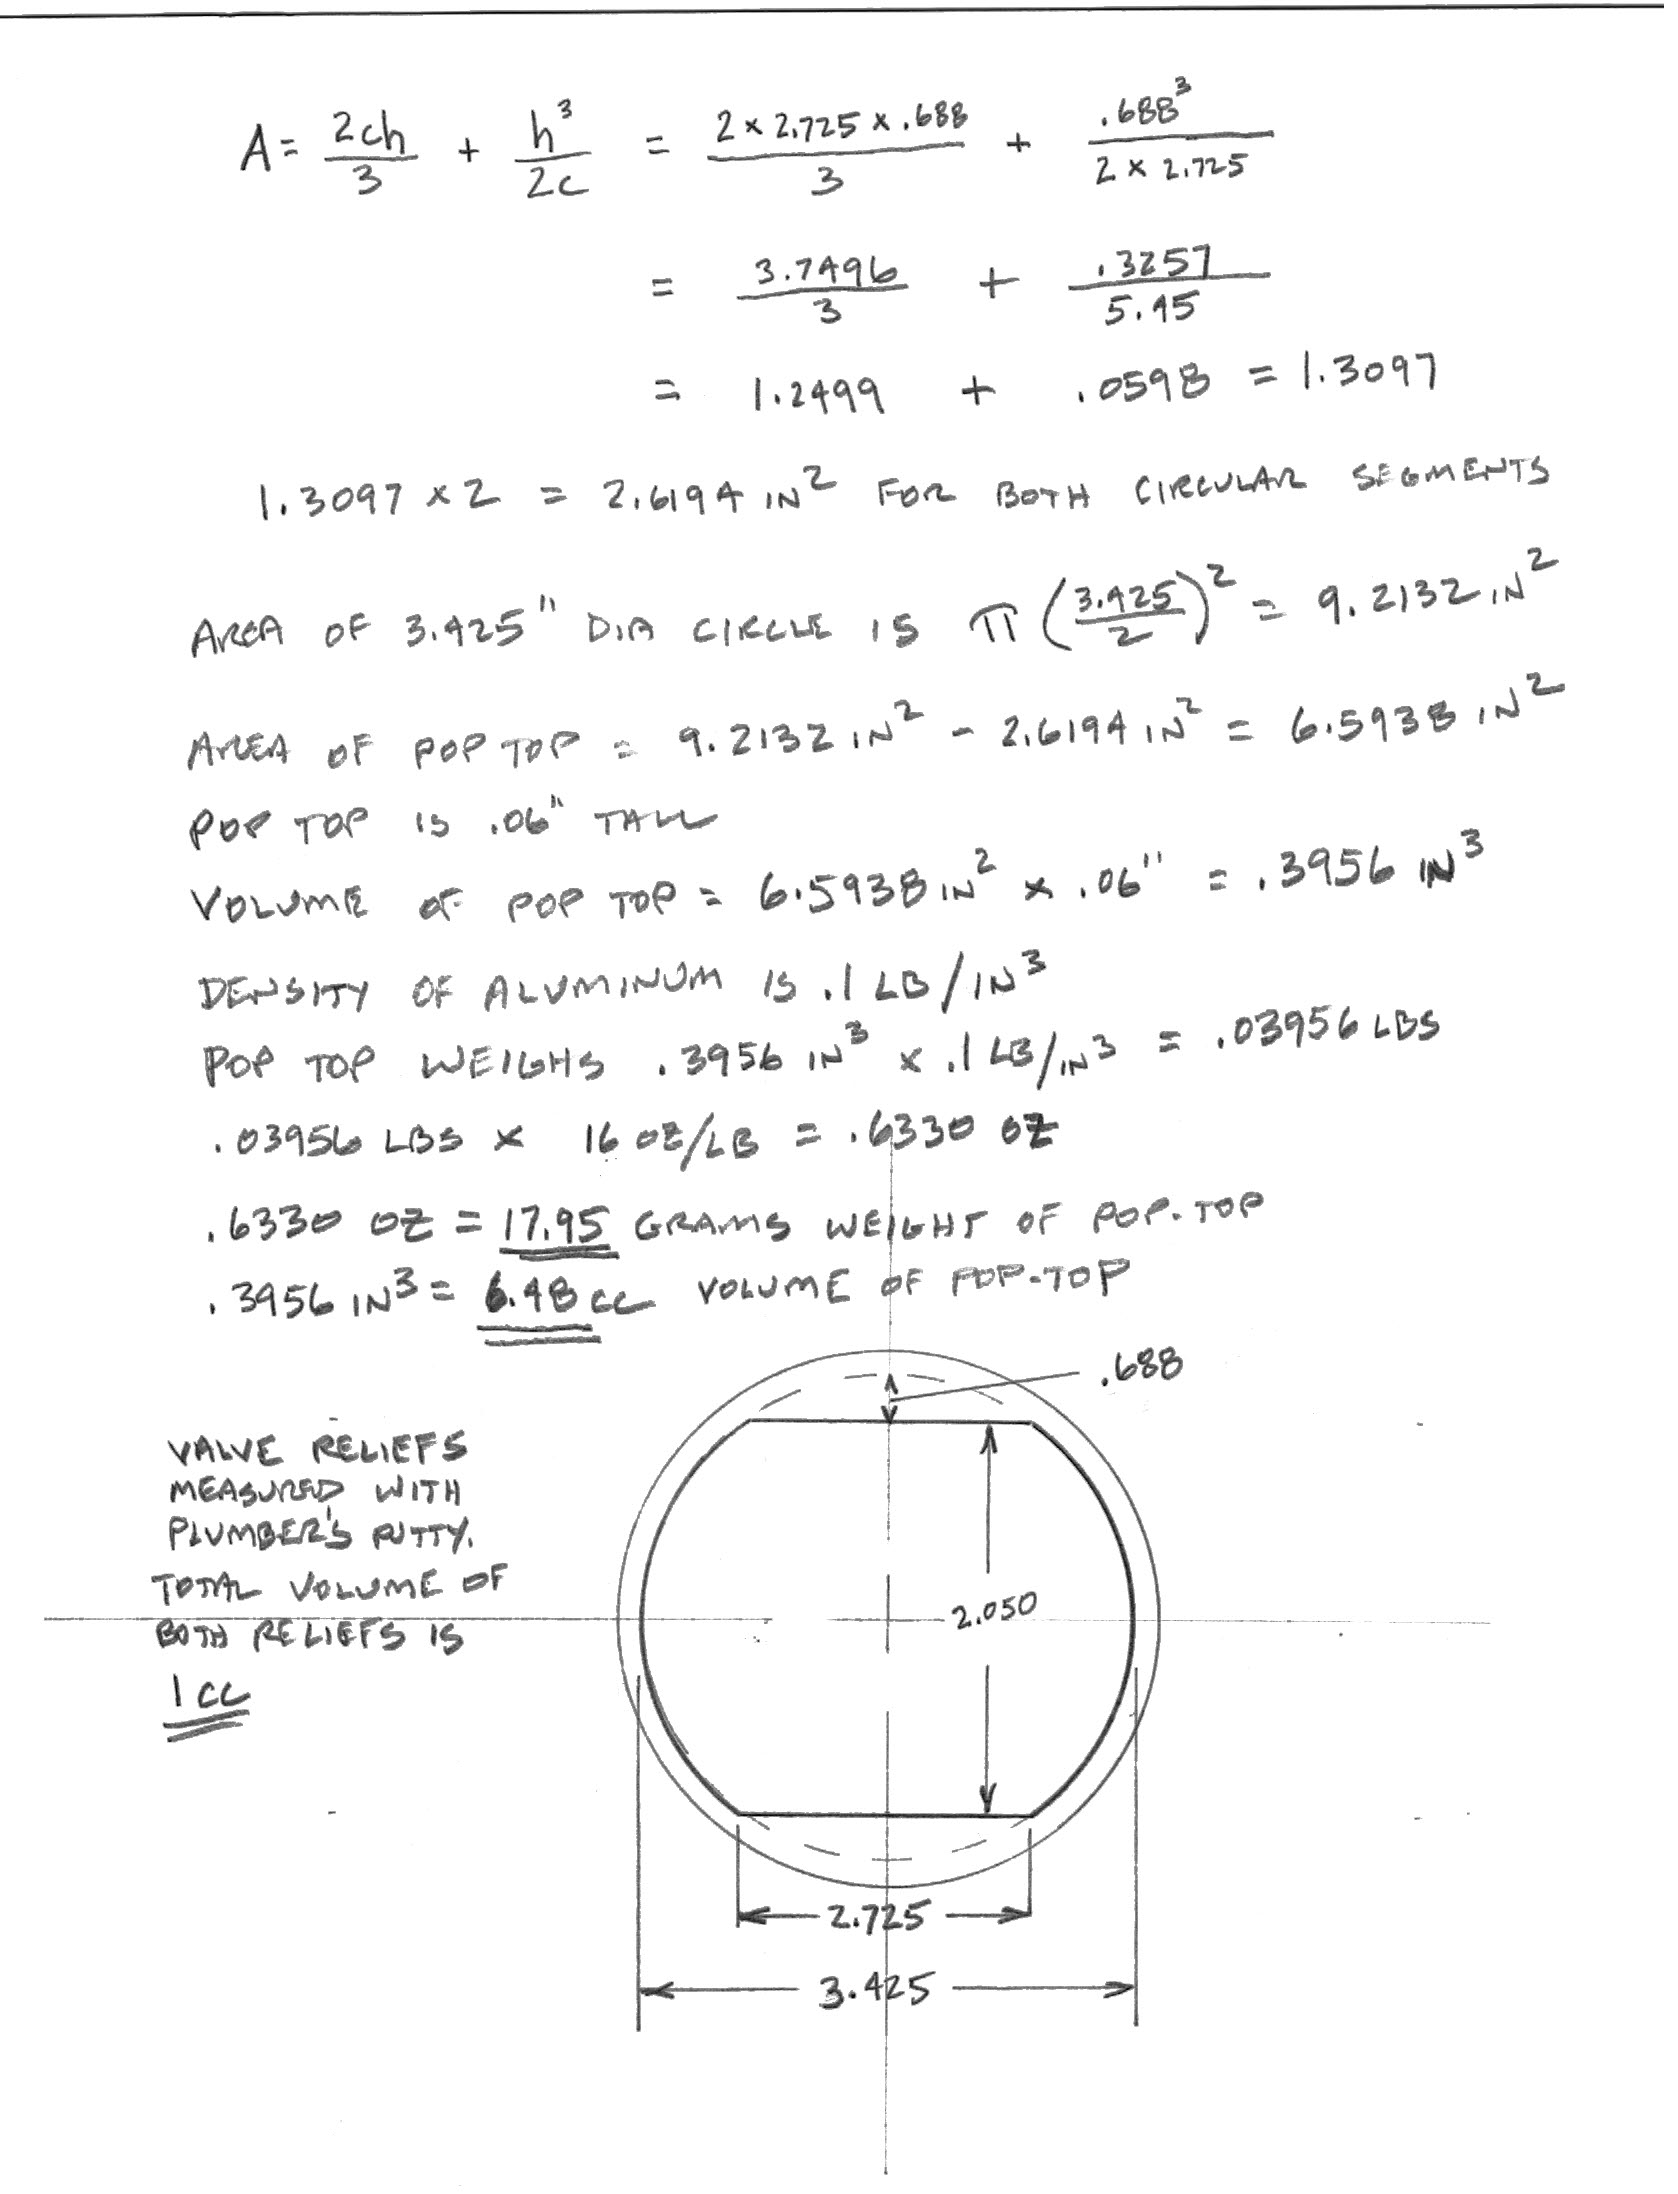 A = 2ch/3 + h³/2c = 2 × 2.725 × .688/3 + .688³/2 × 2.725
= 3.7496/3 + .3257/5.45
= 1.2499 + .0598 = 1.3097
1.3097 × 2 = 2.6194 IN² FOR BOTH CIRCULAR SEGMENTS
AREA OF 3.425" DIA CIRCLE IS π (3.425/2)² = 9.2132 IN²
AREA OF POP TOP = 9.2132 IN² - 2.6194 IN² = 6.5938 IN²
POP TOP IS .06" TALL
VOLUME OF POP TOP = 6.5938 IN² × .06" = .3956 IN³
DENSITY OF ALUMINUM IS .1 LB/IN³
POP TOP WEIGHS .3956 IN³ × .1 LB/IN³ = .03956 LBS
.03956 LBS × 16 OZ/LB = .6330 OZ
.6330 OZ = 17.95 GRAMS WEIGHT OF POP-TOP
.3956 IN³ = 6.48 CC VOLUME OF POP-TOP
.688
VALVE RELIEFS
MEASURED WITH
PLUMBER'S PUTTY.
TOTAL VOLUME OF
BOTH RELIEFS IS
1 CC
2.050
2.725
3.425